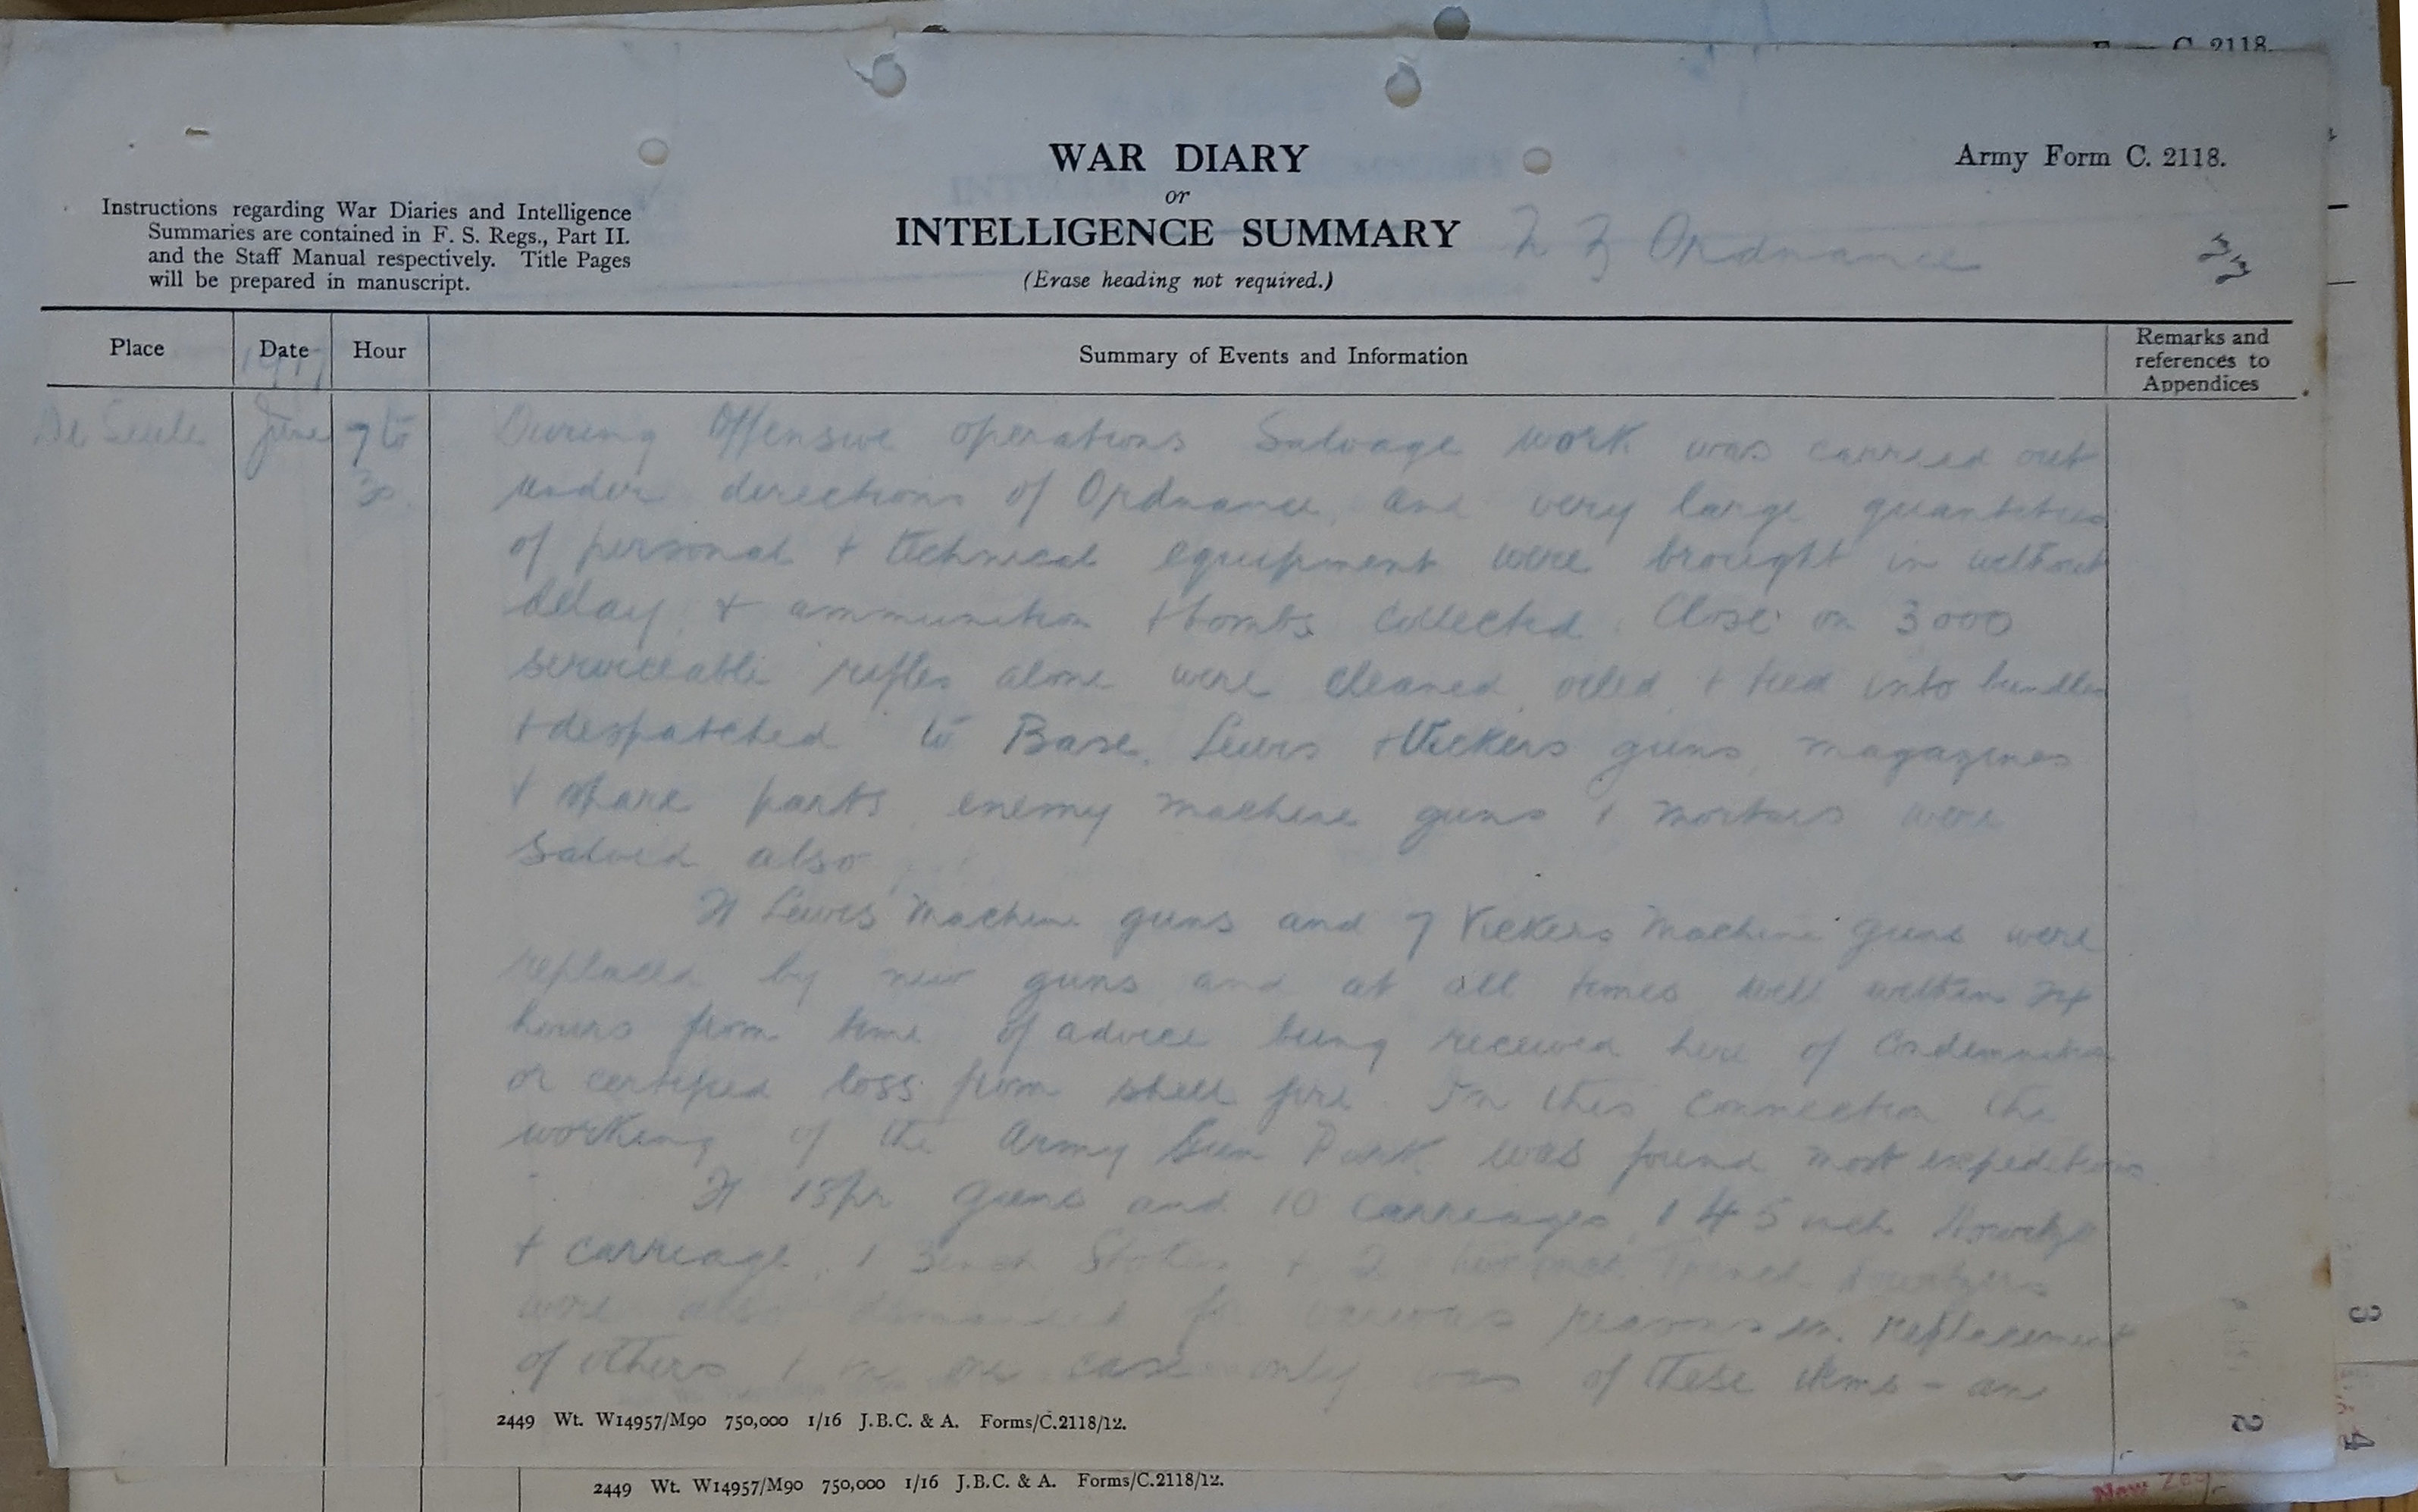 C. 2118.
WAR DIARY
or
INTELLIGENCE SUMMARY
(Erase heading not required.)
Army Form C. 2118.
Instructions regarding War Diaries and Intelligence
Summaries are contained in F. S. Regs., Part II.
and the Staff Manual respectively. Title Pages
will be prepared in manuscript.
N Z Ordnance
Place
Date
Hour
Summary of Events and Information
Remarks and
references to
Appendices
1917
De Seule June 7 to
30
During Offensive operations Salvage work was carried out
under directions of Ordnance, and very large quantities
of personal + technical equipment were brought in without
delay, + ammunition + bombs collected. Close on 3000
serviceable rifles alone were cleaned, oiled, + tied into bundles
+ despatched to Base. Lewis + Vickers guns, magazines
+ spare parts, enemy machine guns + mortars were
salved also
Lewis Machine guns and 7 Vickers Machine guns were
replaced by new guns and at all times well within 24
hours from time of advice being received here of Condemnation
or certified loss from shell fire. In this connection the
working of the Army Gun Park was found most expeditious
guns and 10 carriages, 1 4 5 inch Howitzer
+ carriage, 1 3 inch Stokes + 2
were also demanded for various reasons in replacement
of others case only was of these items - an
2449 Wt. W14957/M90 750,000 1/16 J.B.C. & A. Forms/C.2118/12.
2449 Wt. W14957/M90 750,000 1/16 J.B.C. & A. Forms/C.2118/12.
3
2
4